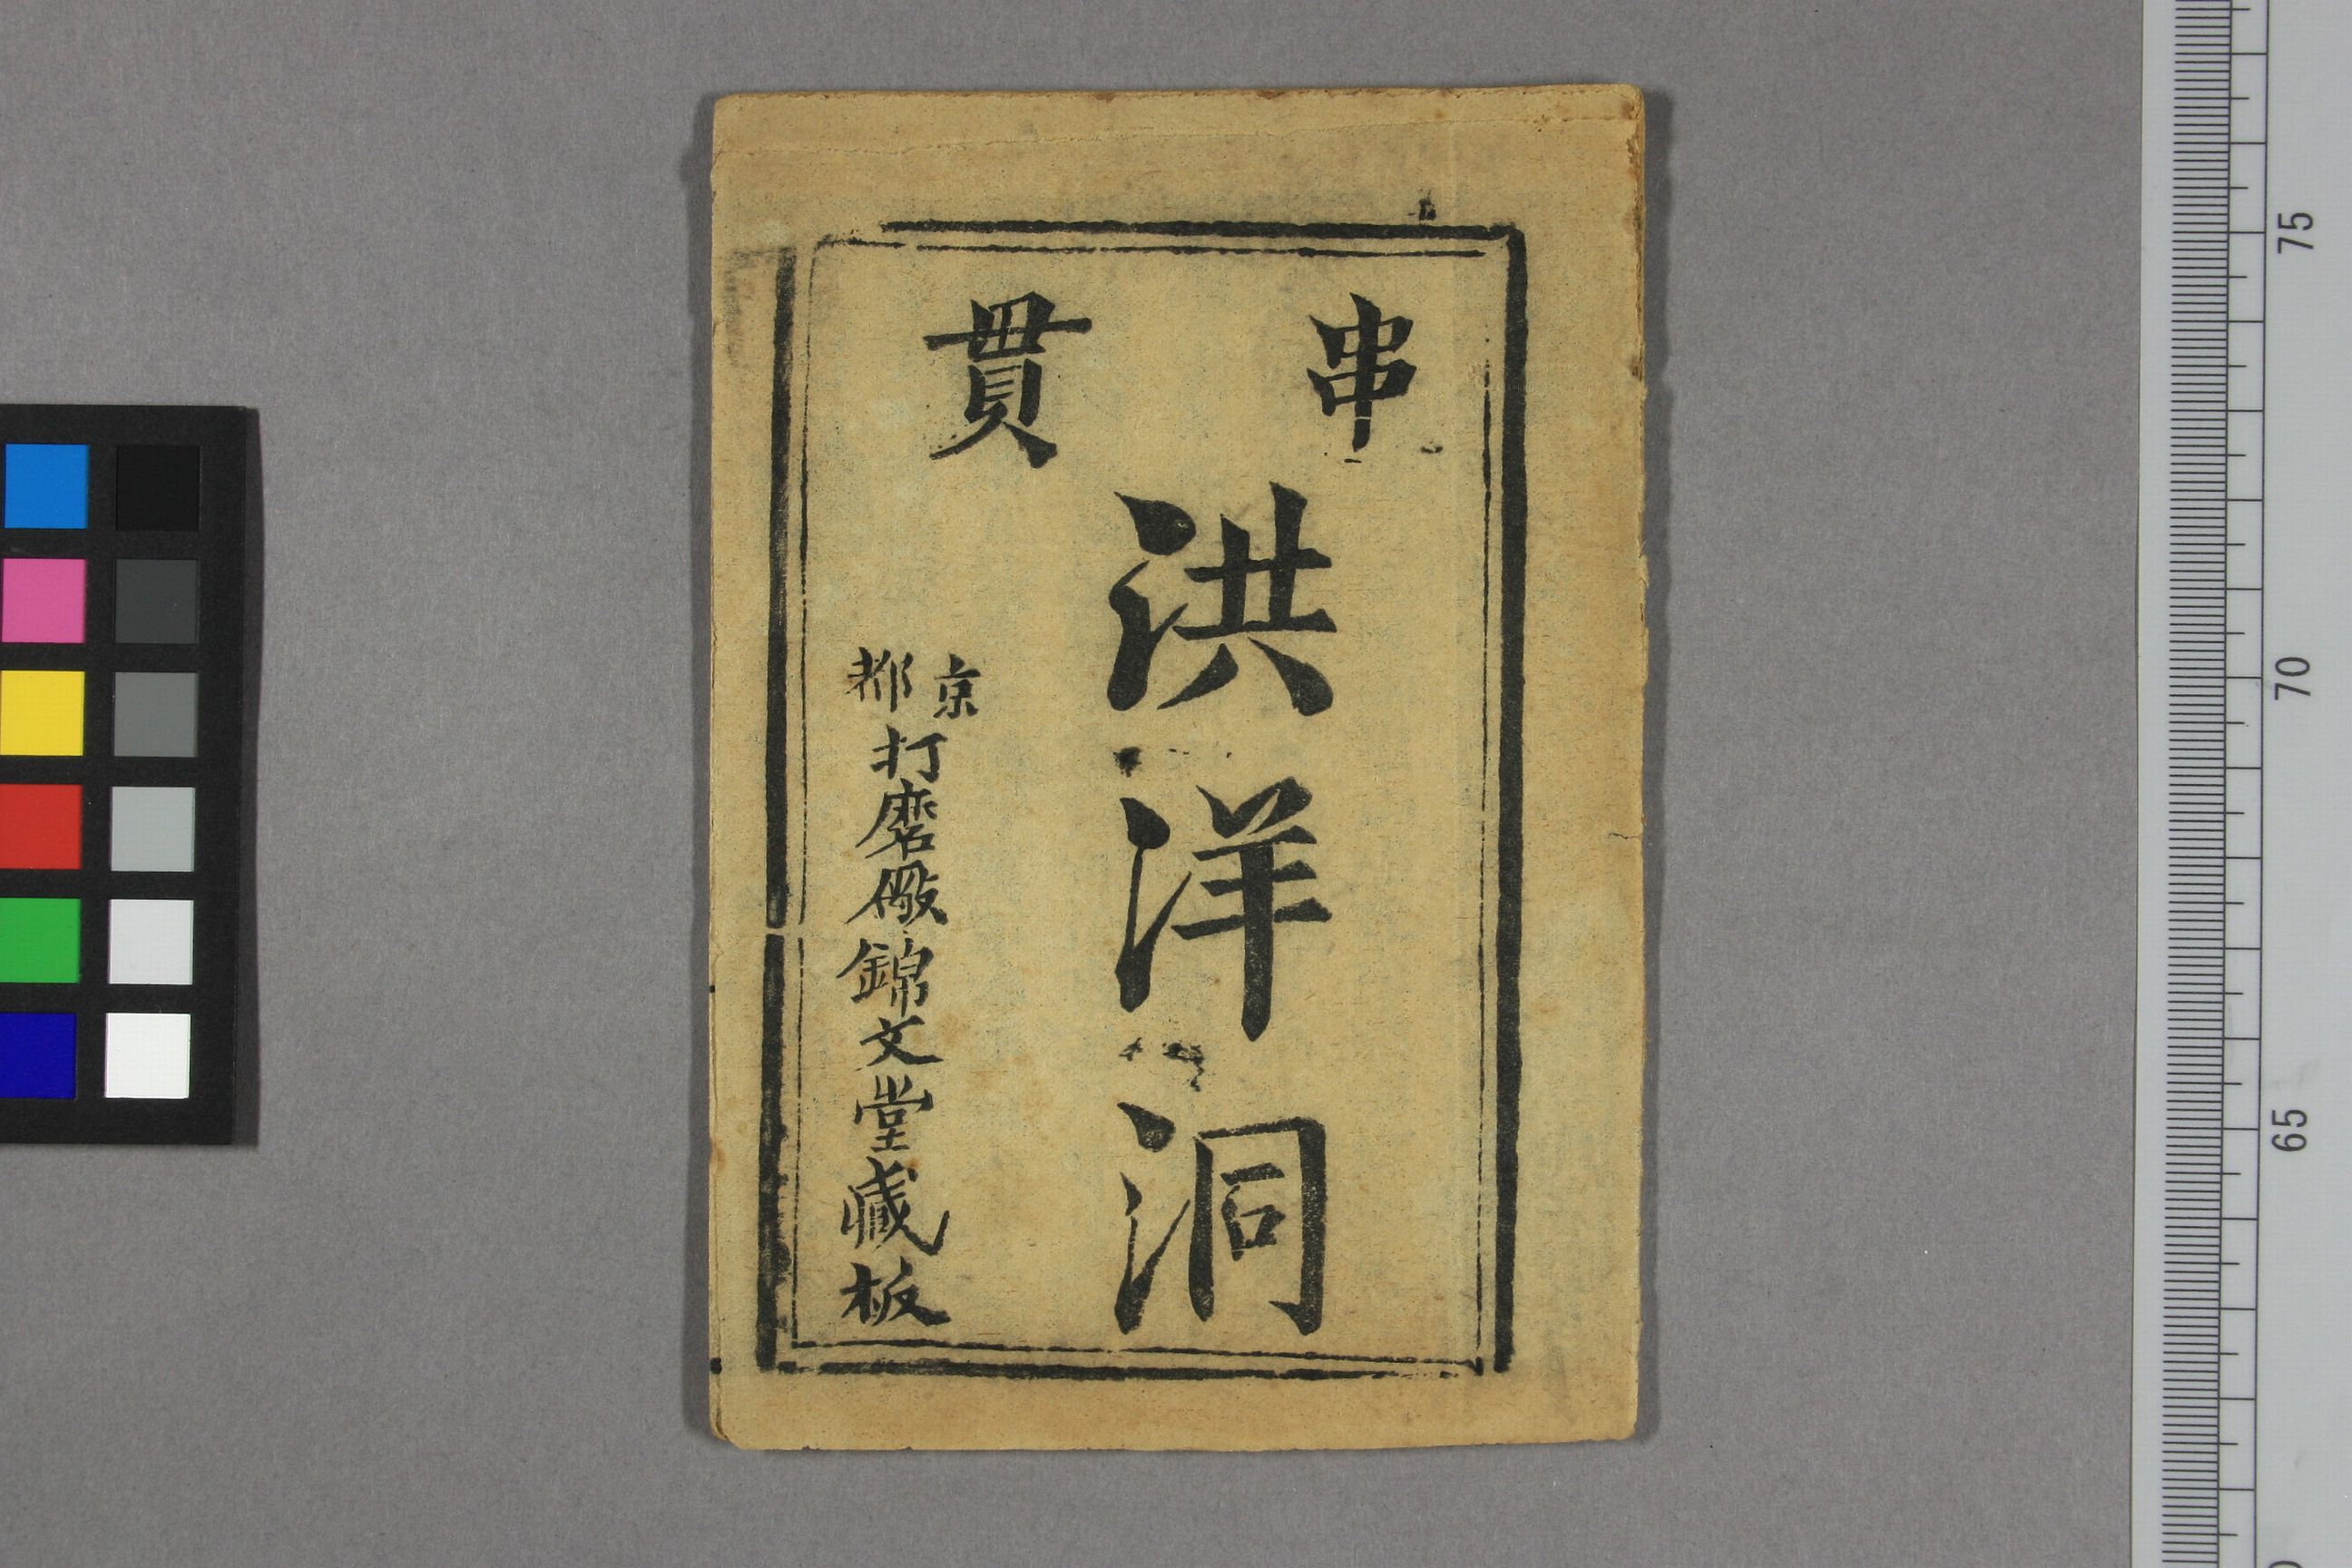 串貫
洪洋洞
京都打磨厰錦文堂藏板
75
70
65